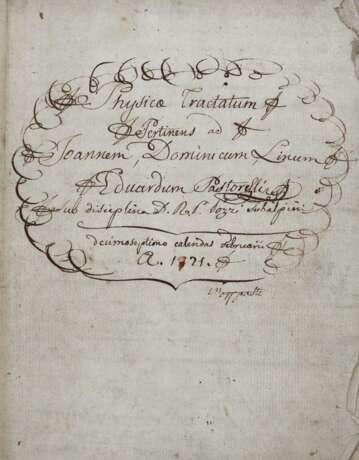 Physicæ Tractatum
Pertinens ad
Joannem, Dominicum Linum
Eduardum Pastorelli
sub disciplina D. R. P.
decimoseptimo calendas februarii
A. 1771.